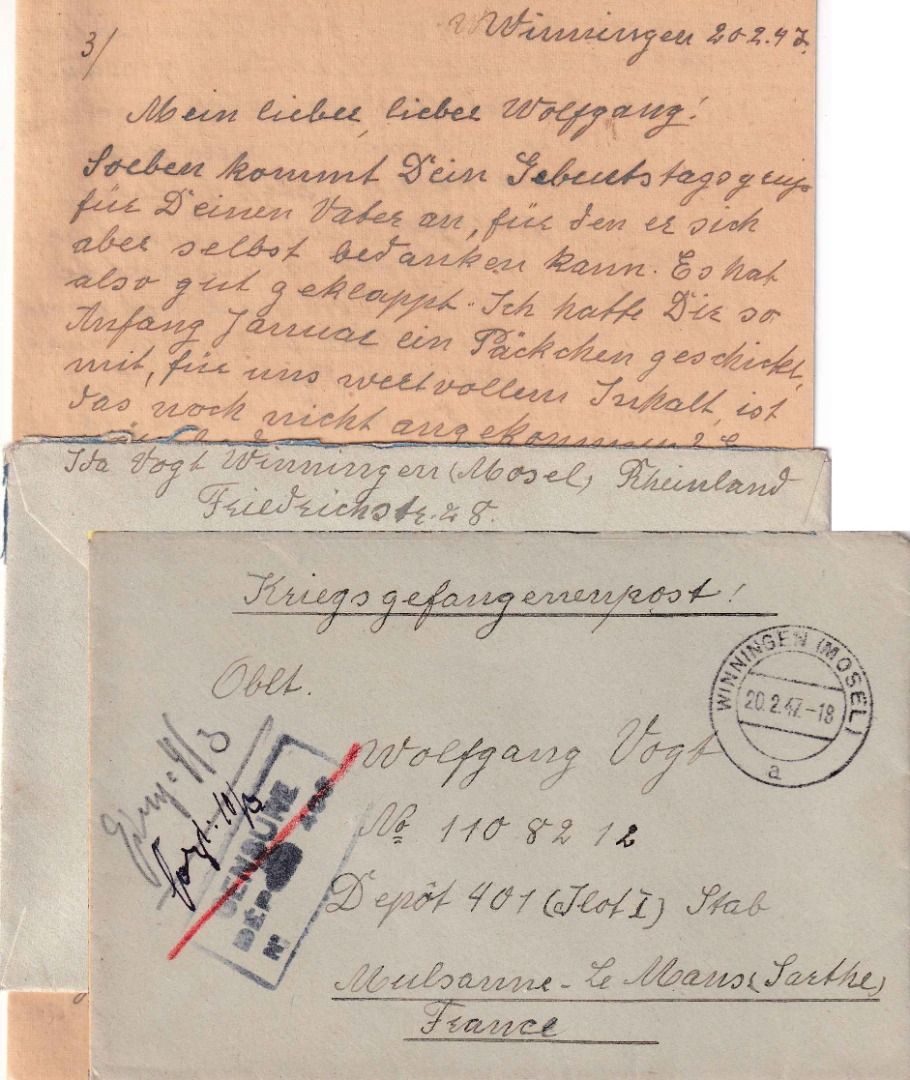 3/
Winningen 20.2.47.
Mein lieber, lieber Wolfgang!
Soeben kommt Dein Geburtstagsgruß
für Deinen Vater an, für den er sich
aber selbst bedanken kann. Es hat
also gut geklappt. Ich hatte Dir so
Anfang Januar ein Päckchen geschickt,
mit, für uns wertvollem Inhalt, ist
das noch nicht angekommen?
Ida Vogt Winningen (Mosel) Rheinland
Friedrichstr. 28.
Kriegsgefangenenpost!
WINNINGEN (MOSEL)
20.2.47.-18
a
Oblt.
Wolfgang Vogt
No 1108212
Depôt 401 (Ilot I) Stab
Mulsanne - Le Mans (Sarthe)
France
CENSURE
DÉPÔT 402
N°